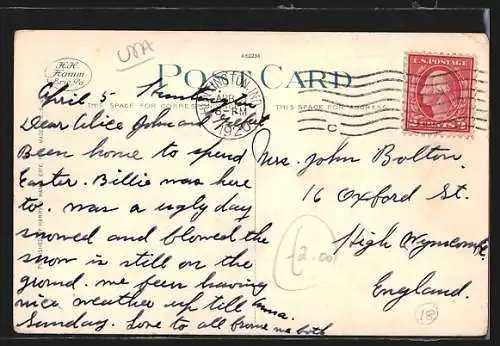 USA
H.H. Hamm
Erie, Pa.
POST CARD
THIS SPACE FOR CORRES
THIS SPACE FOR ADDRESS
U.S. POSTAGE
APR
PM
1920
C
April 5
Dear Alice John and
Been home to spend
Easter. Billie was here
to. was a ugly day
snowed and blowed the
snow is still on the
ground. we been having
nice weather up till
Sunday. Love to all from we both
Anna.
Mrs. John Bolton.
16 Oxford St.
High Wycombe.
England.
£2.00
18